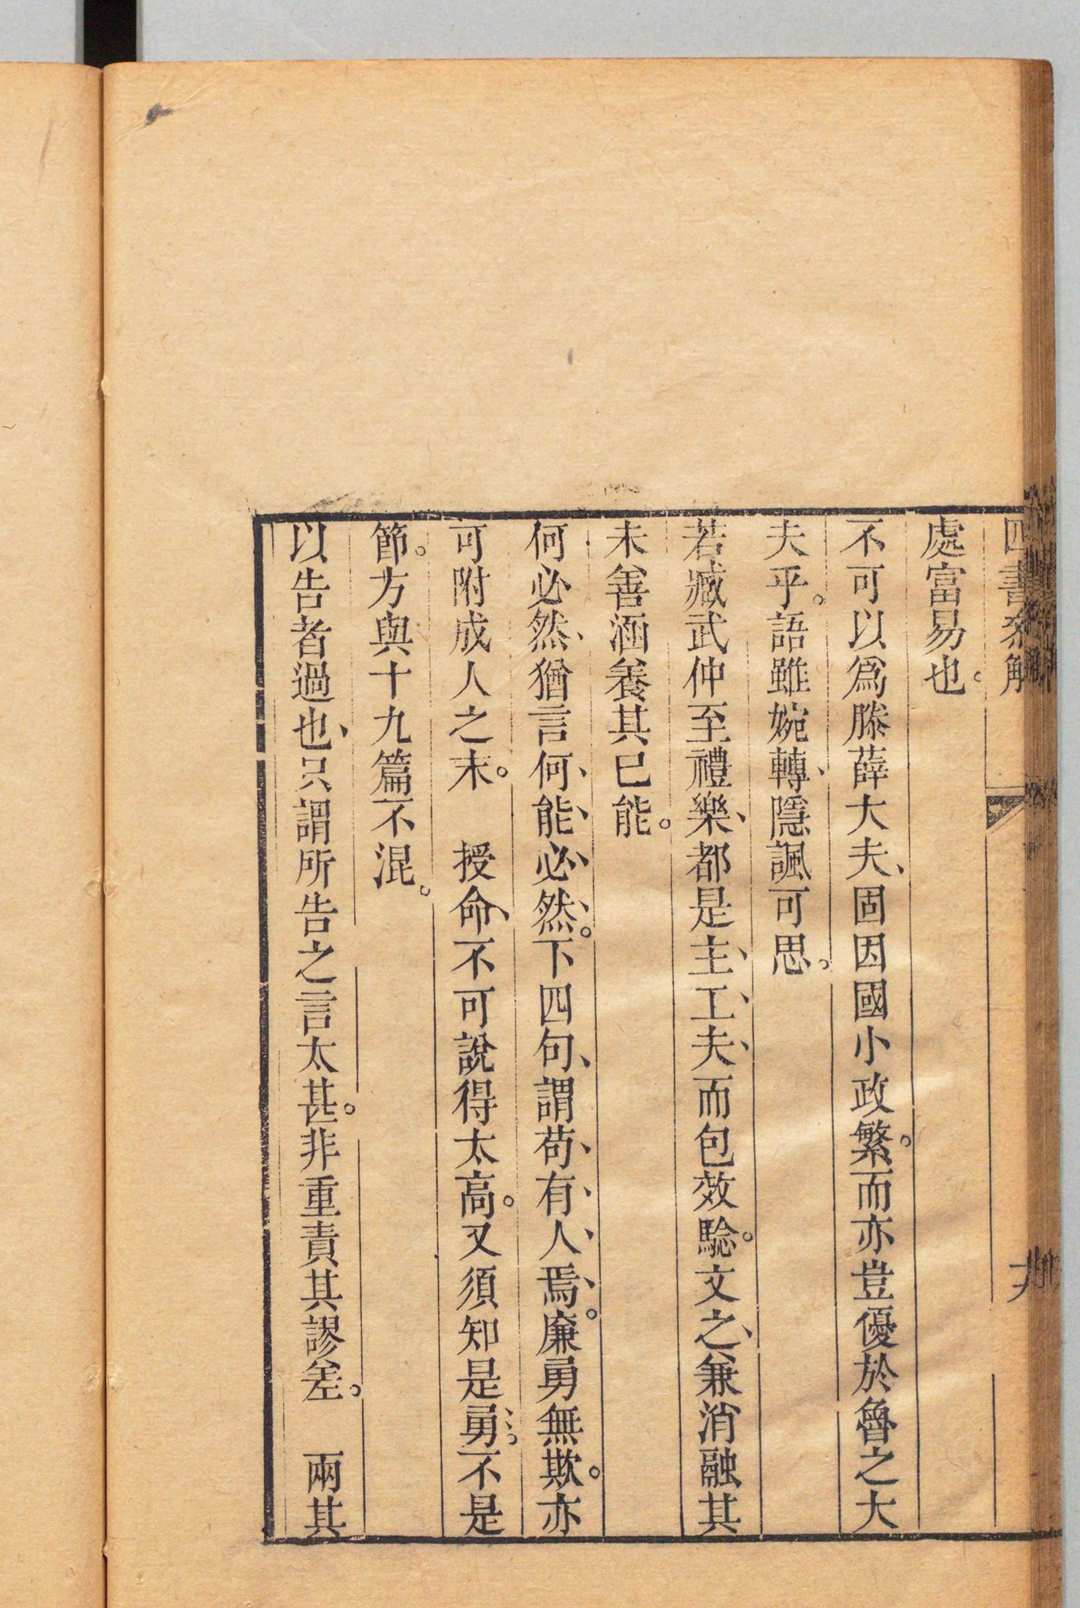 四書
處富易也。
不可以爲滕薛大夫、固因國小政繁。而亦豈優於魯之大
夫乎。語雖婉轉、隱諷可思。
若臧武仲至禮樂、都是主、工、夫、而包效驗。文之、兼消融其
未善涵養其已能。
何必然、猶言何、能、必、然、。下四句、謂苟、有、人、焉、。廉勇無欺。亦
可附成人之末。　授命、不可說得太高。又須知是勇、、。不是
節。方與十九篇不混。
以告者過也、只謂所告之言太甚。非重責其謬差。　兩其